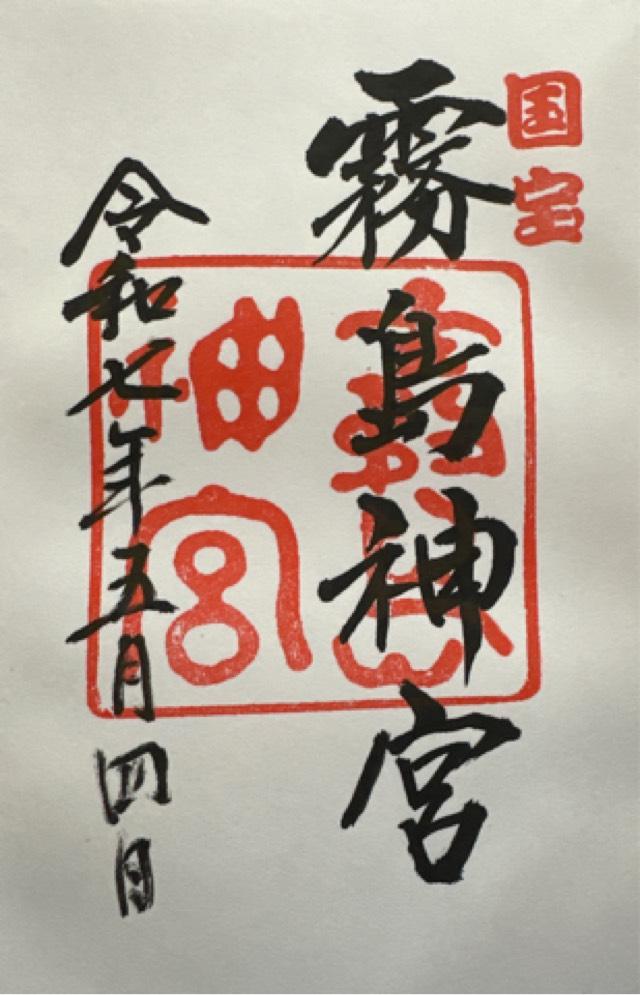 国宝
霧島神宮
霧島神宮
令和七年五月四日